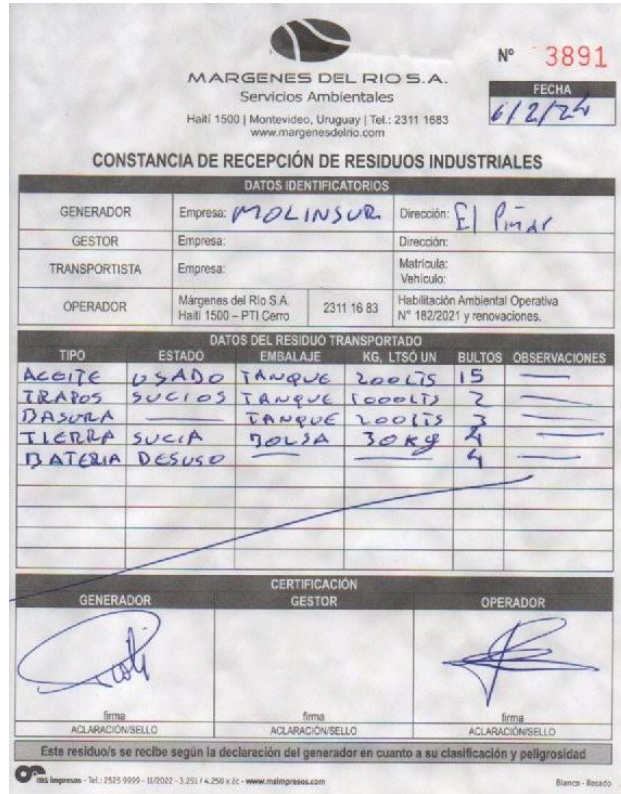 Nº 3891
MARGENES DEL RIO S.A.
Servicios Ambientales
Haití 1500 | Montevideo, Uruguay | Tel.: 2311 1683
www.margenesdelrio.com
FECHA
6/2/24
CONSTANCIA DE RECEPCIÓN DE RESIDUOS INDUSTRIALES
DATOS IDENTIFICATORIOS
GENERADOR Empresa: MOLINSUR Dirección: El Pinar
GESTOR Empresa: Dirección:
TRANSPORTISTA Empresa: Matrícula:
Vehículo:
OPERADOR Márgenes del Río S.A. 2311 16 83 Habilitación Ambiental Operativa
Haití 1500 – PTI Cerro Nº 182/2021 y renovaciones.
DATOS DEL RESIDUO TRANSPORTADO
TIPO ESTADO EMBALAJE KG, LTSÓ UN BULTOS OBSERVACIONES
ACEITE USADO TANQUE 200LTS 15 —
TRAPOS SUCIOS TANQUE 1000LTS 2 —
BASURA — TANQUE 200LTS 3 —
TIERRA SUCIA BOLSA 30Kg 4 —
BATERIA DESUSO — — 4 —
CERTIFICACIÓN
GENERADOR GESTOR OPERADOR
firma firma firma
ACLARACIÓN/SELLO ACLARACIÓN/SELLO ACLARACIÓN/SELLO
Este residuo/s se recibe según la declaración del generador en cuanto a su clasificación y peligrosidad
ms impresos - Tel.: 2525 9999 - 11/2022 - 3.251 / 4.250 x 2c - www.msimpresos.com Blanco - Rosado